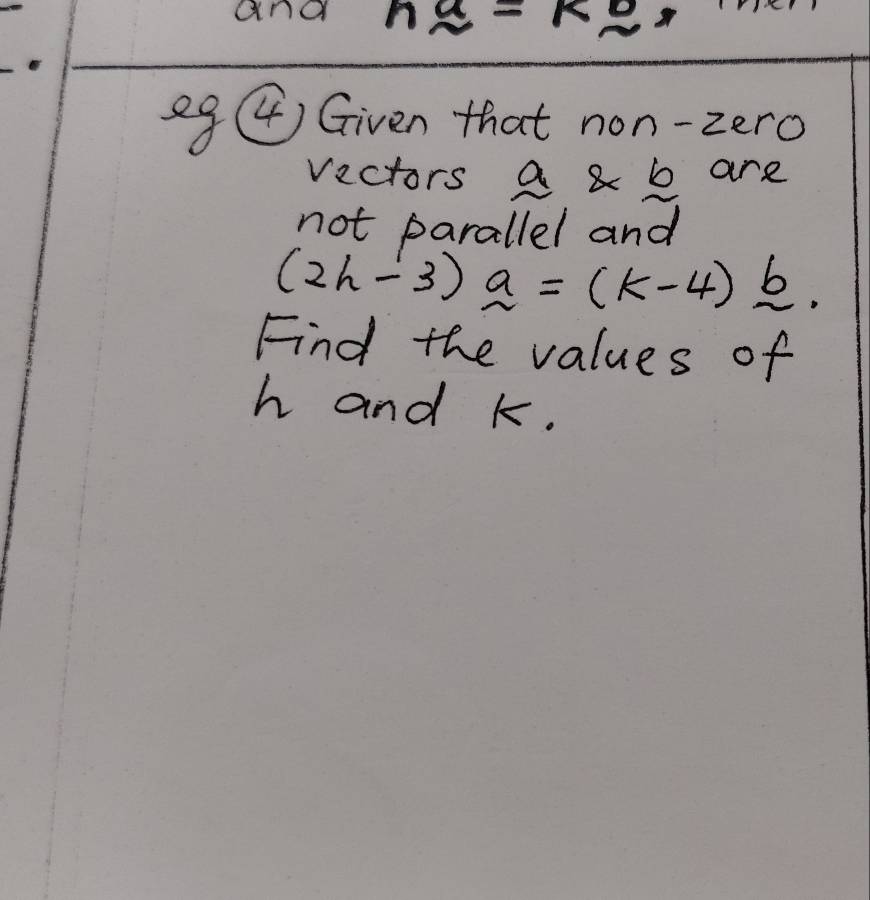 and ha = kb, then
eg ④ Given that non-zero
vectors a & b are
not parallel and
(2h-3) a = (k-4) b.
Find the values of
h and k.